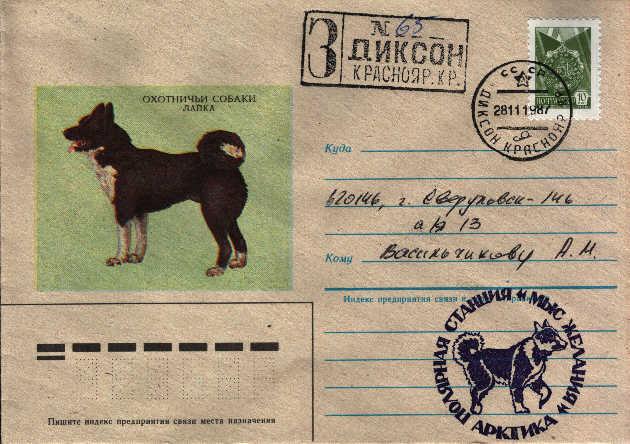 З
№ 65
ДИКСОН
КРАСНОЯР. КР.
СССР
ПОЧТА СССР
10
ДИКСОН КРАСНОЯР.
28111987
ОХОТНИЧЬИ СОБАКИ
ЛАЙКА
Куда
620146, г. Свердловск-146
а/я 13
Кому
Васильчикову А. М.
Индекс предприятия связи и
ПОЛЯРНАЯ СТАНЦИЯ "МЫС ЖЕЛАНИЯ"
АРКТИКА
Пишите индекс предприятия связи места назначения